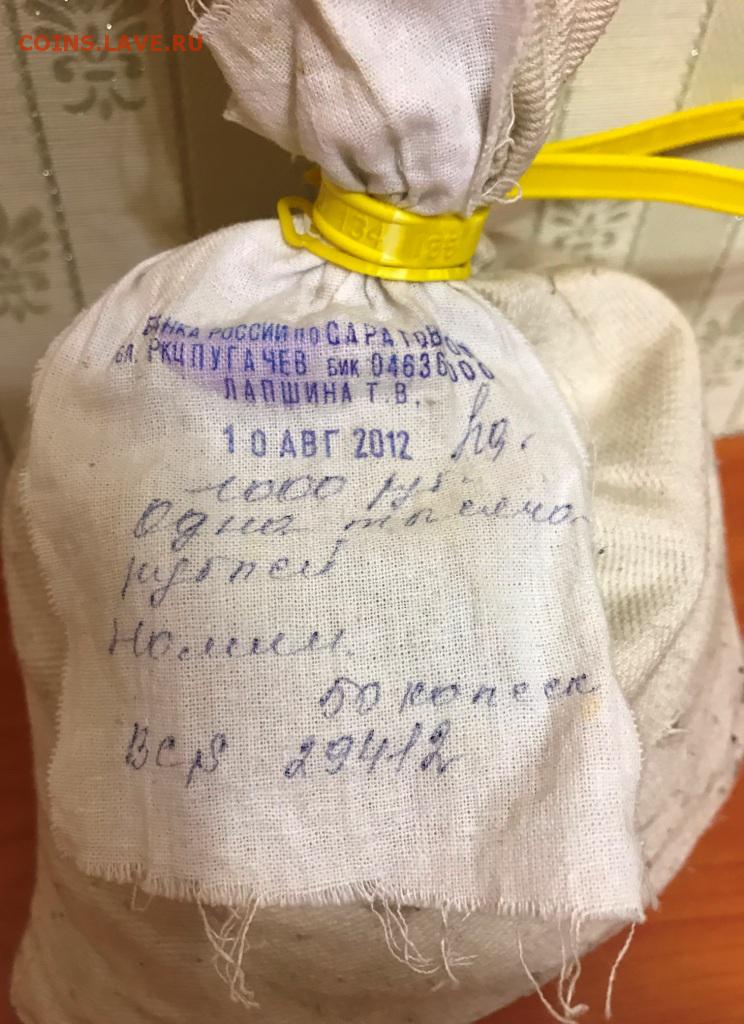 COINS.LAVE.RU
134 195
БАНКА РОССИИ ПО САРАТОВ
РКЦ ПУГАЧЕВ БИК 04636000
ЛАПШИНА Т.В.
10 АВГ 2012
1000 руб.
Одна тысяча
рублей
Номин.
50 копеек
29412